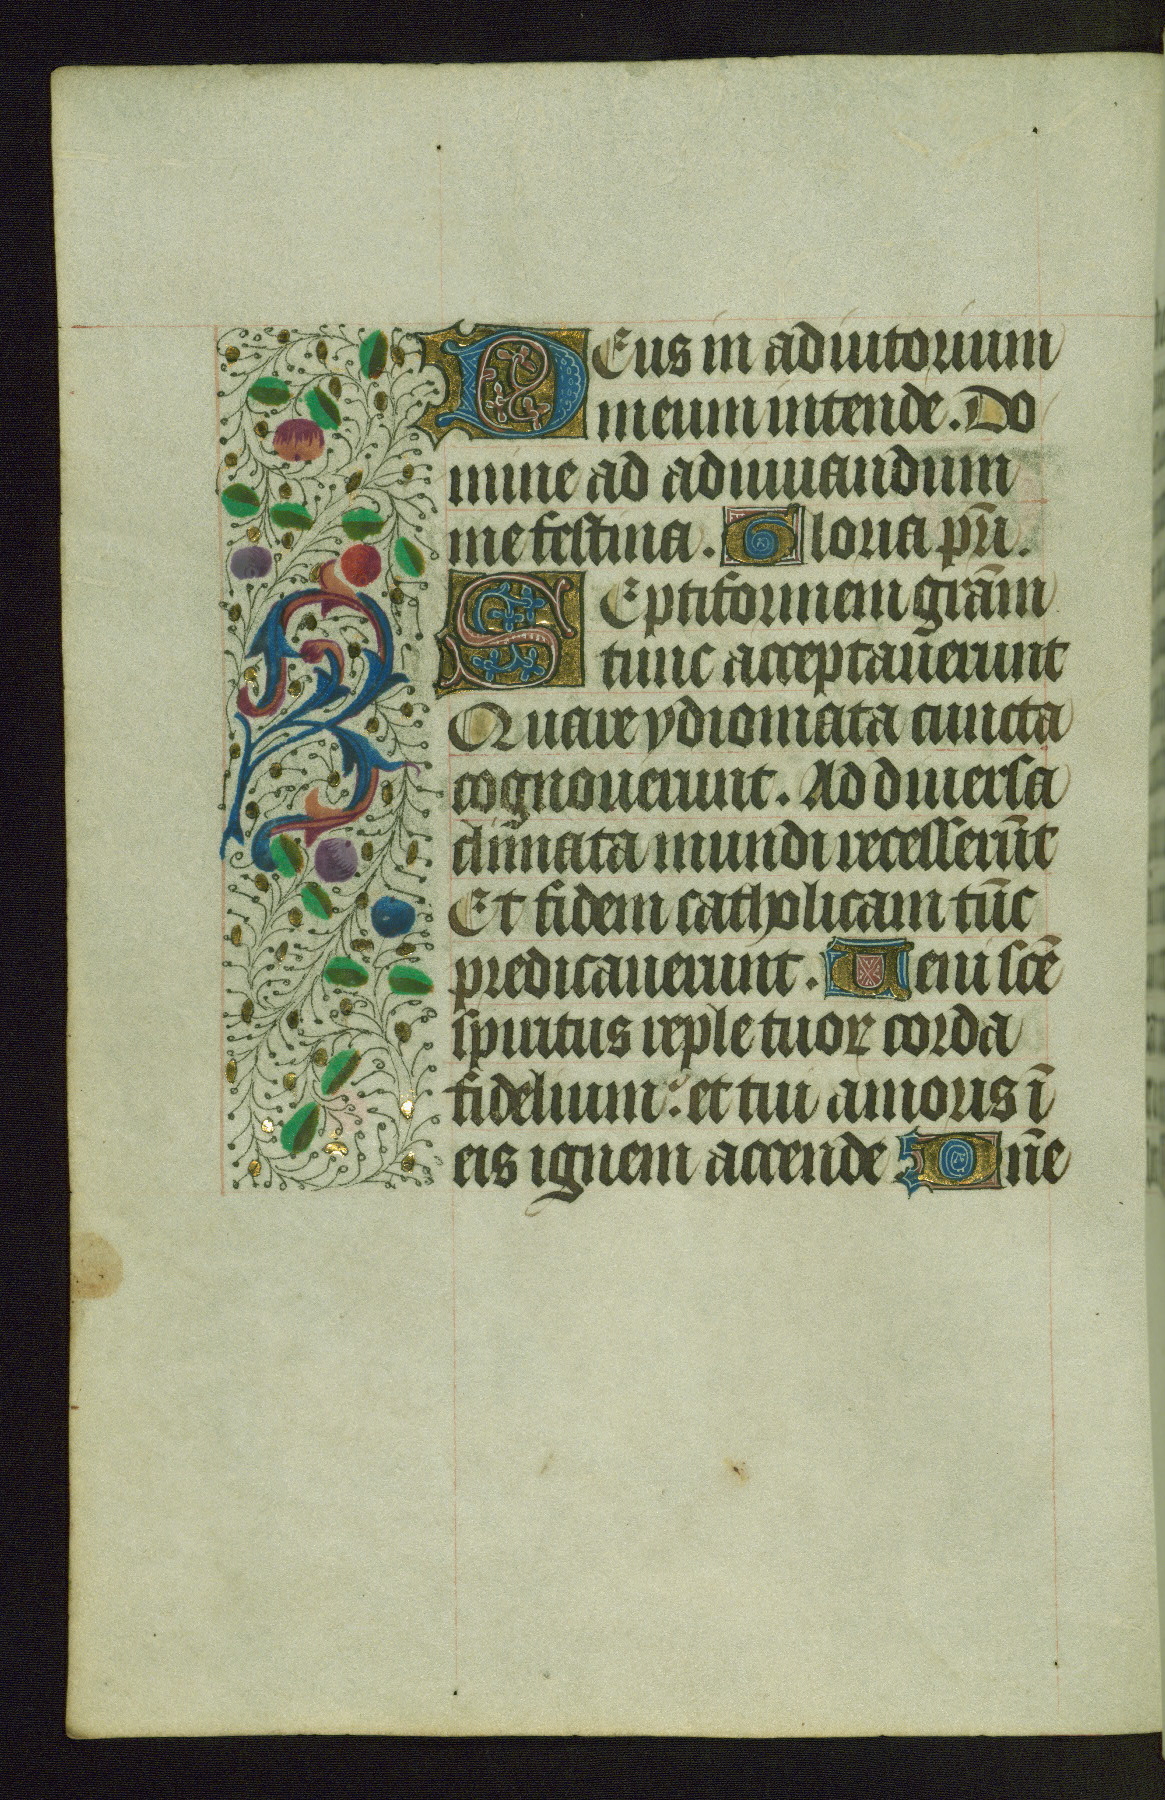 DEus in adiutorium
meum intende. Do
mine ad adiuuandum
me festina. Gloria pr̄i.
SEptiformem grām
tunc acceptaūerunt
Quare ydiomata cuncta
cognouerunt. Ad diuersa
climata mundi recesserūt
Et fidem catholicam tūc
predicauerunt. Ueni scē
spiritus reple tuoꝝ corda
fidelium: et tui amoris ī
eis ignem accende Dn̄e